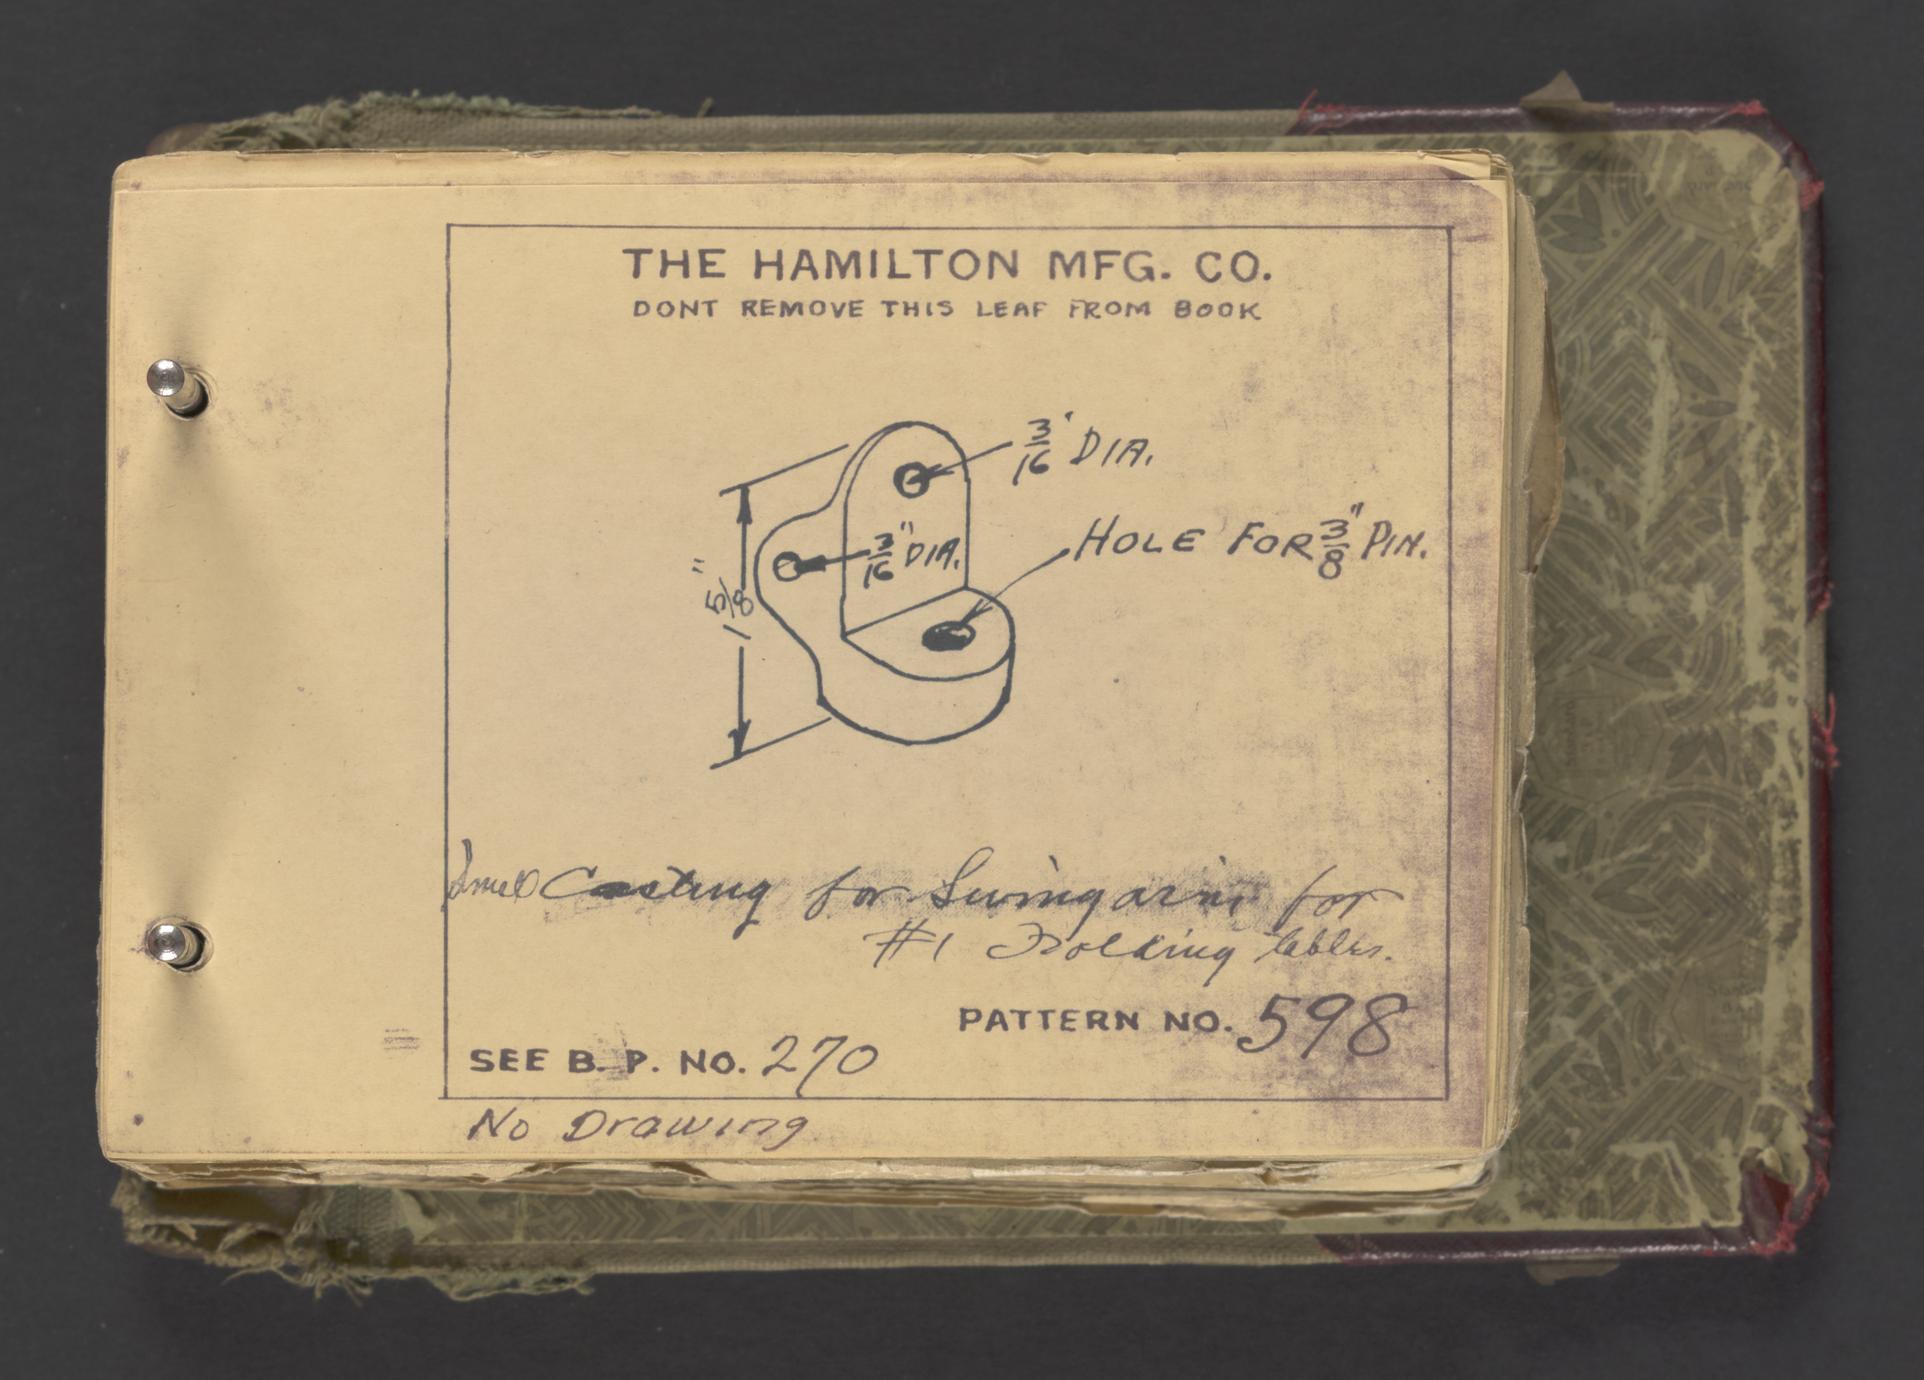 THE HAMILTON MFG. CO.
DONT REMOVE THIS LEAF FROM BOOK
3/16" DIA.
HOLE FOR 3/8" PIN.
3/16" DIA.
1 5/8"
Small Casting for Swing arm for
#1 Folding tables.
PATTERN NO. 598
SEE B. P. NO. 270
No Drawing